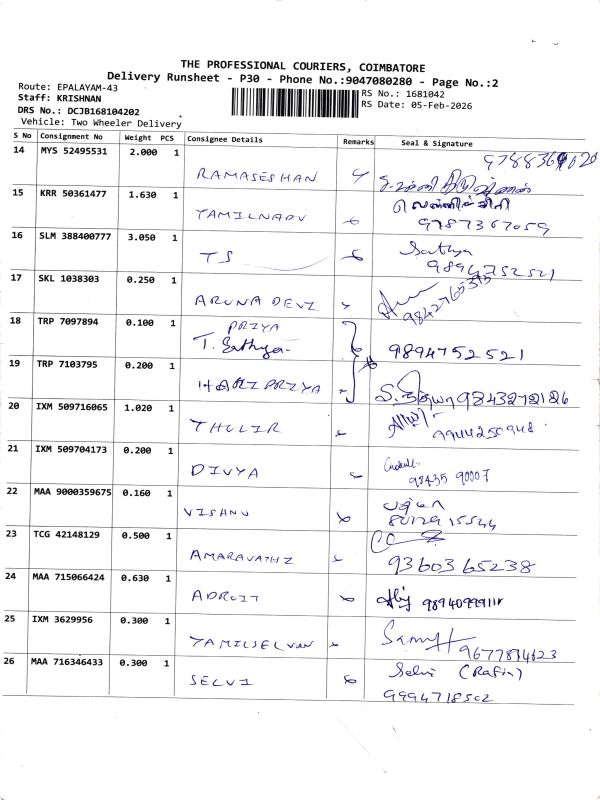 THE PROFESSIONAL COURIERS, COIMBATORE
Delivery Runsheet - P30 - Phone No.:9047080280 - Page No.:2
Route: EPALAYAM-43
Staff: KRISHNAN
DRS No.: DCJB168104202
Vehicle: Two Wheeler Delivery
RS No.: 1681042
RS Date: 05-Feb-2026
S No Consignment No Weight PCS Consignee Details Remarks Seal & Signature
14 MYS 52495531 2.000 1 RAMASESHAN
15 KRR 50361477 1.630 1 TAMILNADU 9787367059
16 SLM 388400777 3.050 1 TS Sathya
9894752521
17 SKL 1038303 0.250 1 ARUNA DEVI
18 TRP 7097894 0.100 1 PRIYA
T. Sathya 9894752521
19 TRP 7103795 0.200 1 HARI PRIYA
20 IXM 509716065 1.020 1 THULIR 9944250948
21 IXM 509704173 0.200 1 DIVYA 98435 90007
22 MAA 9000359675 0.160 1 VISHNU
23 TCG 42148129 0.500 1 AMARAVATHI 9360365238
24 MAA 715066424 0.630 1 ADROIT
25 IXM 3629956 0.300 1 TAMILSELVAN
26 MAA 716346433 0.300 1 SELVI Selvi
9994718502